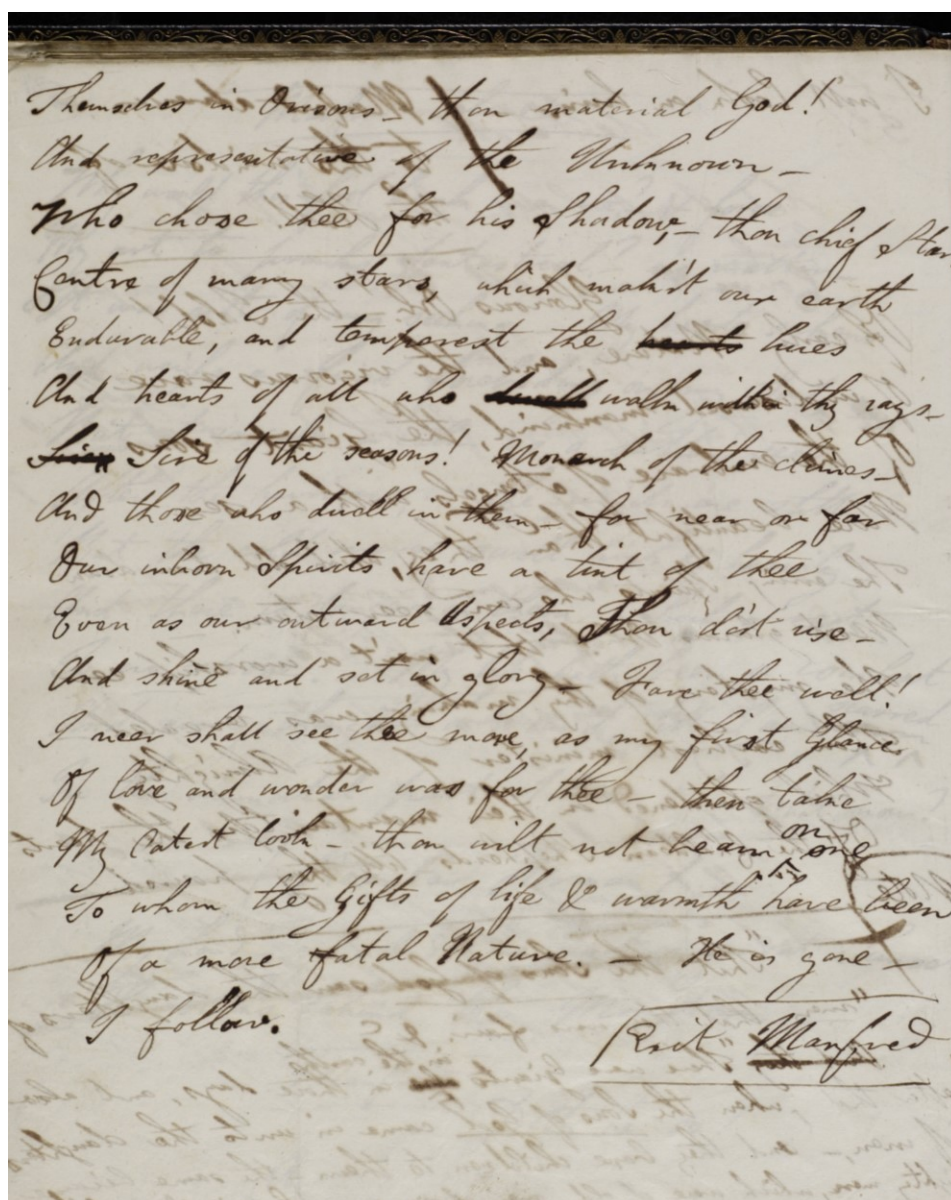 Themselves in Orisons – thou material God!
And representative of the Unknown –
Who chose thee for his Shadow, – thou chief Star
Centre of many stars, which mak'st our earth
Endurable, and temperest the hearts hues
And hearts of all who dwell walk within thy rays –
Sire of the seasons! Monarch of the climes –
And those who dwell in them – for near or far
Our inborn Spirits have a tint of thee
Even as our outward Aspects, Thou do'st rise –
And shine and set in glory – Fare thee well!
I neer shall see thee more, as my first Glance
Of love and wonder was for thee – then take
My latest look – thou wilt not beam on one
To whom the Gifts of life & warmth have been
Of a more fatal Nature. – He is gone –
I follow.
Exit Manfred